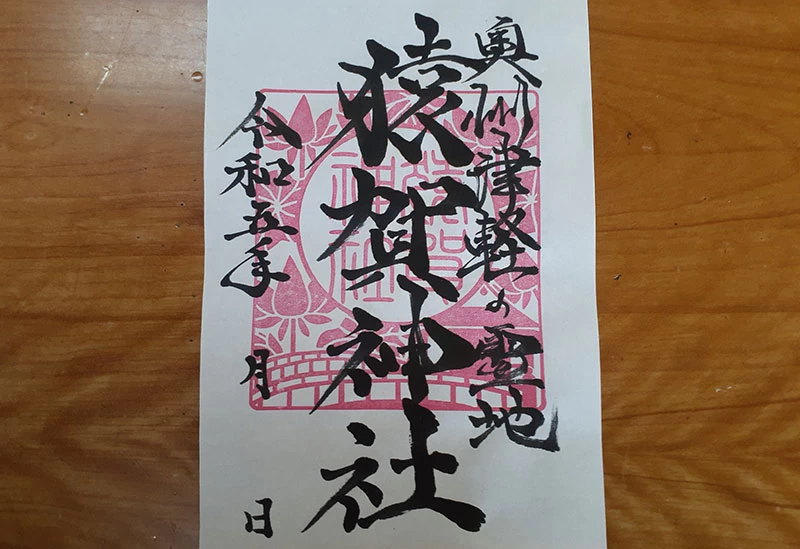 奥州津軽の霊地
猿賀神社
猿賀
神社
令和五年 月 日